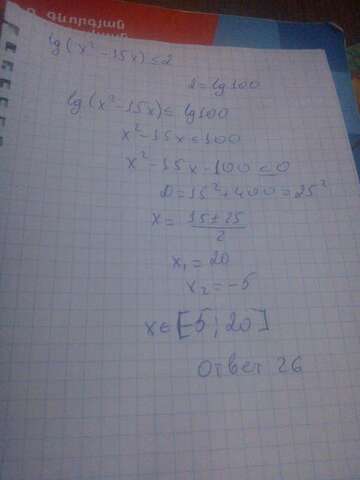 ԳԵՎՈՐԳՅԱՆ
lg(x² - 15x) ≤ 2
2 = lg100
lg(x² - 15x) ≤ lg100
x² - 15x ≤ 100
x² - 15x - 100 ≤ 0
D = 15² + 400 = 25²
x = (15 ± 25)/2
x₁ = 20
x₂ = -5
x ∈ [-5; 20]
Ответ 26